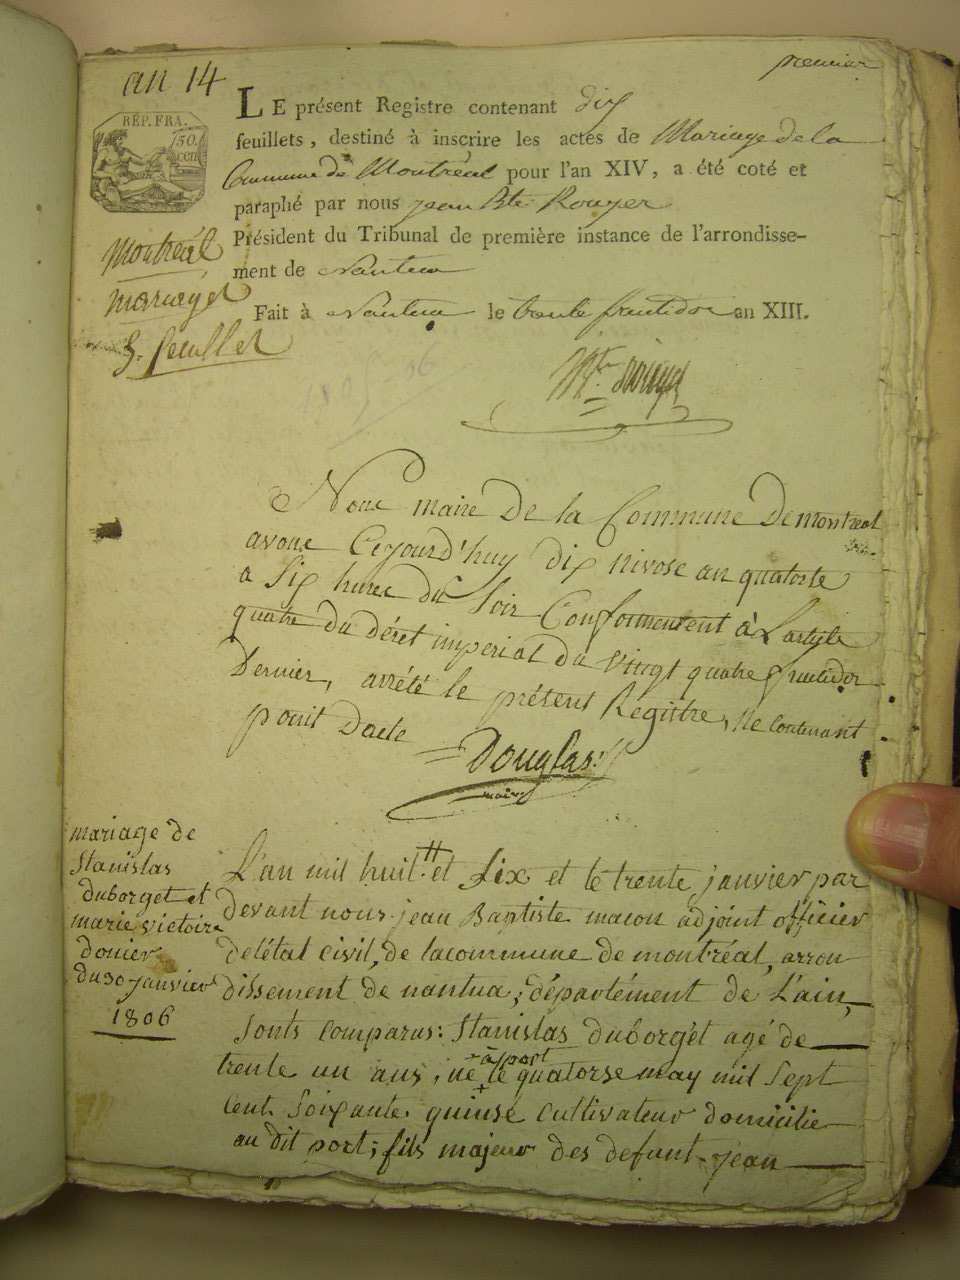 an 14
premier
RÉP. FRA.
50.
cen
LE présent Registre contenant dix
feuillets, destiné à inscrire les actes de Mariage de la
Commune de Montréal pour l'an XIV, a été coté et
paraphé par nous jean Bte Rouyer
Président du Tribunal de première instance de l'arrondisse-
ment de Nantua
Fait à Nantua le trente fructidor an XIII.
Montréal
mariages
feuillet
Nous maire De la Commune De montreal
avons Cejourd'huy dix nivose an quatorse
a Six hures du Soir Conformement à Lartyle
quatre du déret imperial du vingt quatre fructidor
Dernier, arrété le présent Registre, ne Contenant
point Dacte
Douglas
maire
mariage de
Stanislas
duborget et
marie victoire
donier
du 30 janvier
1806
L'an mil huit et Six et le trente janvier par
devant nous jean Baptiste macon adjoint officier
de létat civil, de lacommune de montréal, arron
dissement de nantua, département de L'ain,
Sonts comparus: Stanislas duborgèt agé de
trente un ans, né le quatorse may mil Sept
+ à port
Cent Soixante quinse cultivateur domicilie
au dit port; fils majeur des defunt jean